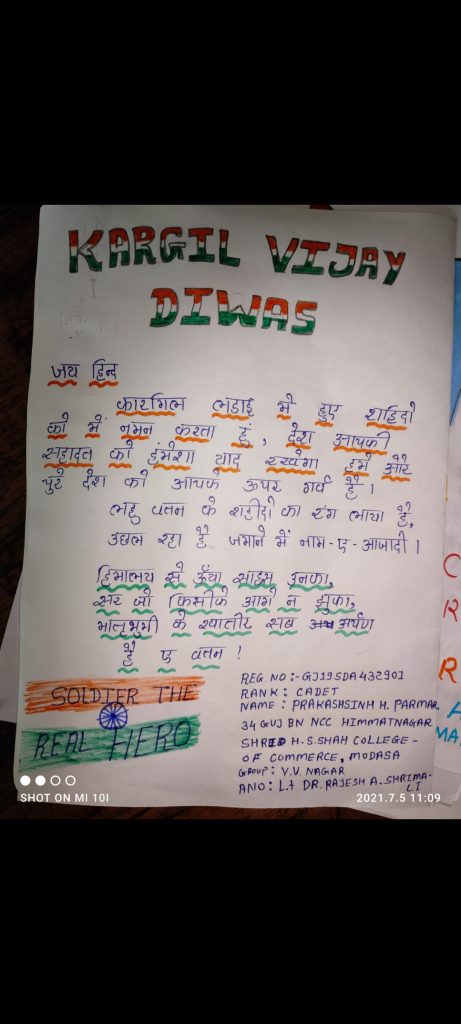 KARGIL VIJAY
DIWAS
जय हिन्द
कारगिल लडाई मे हुए शहिदो
को मैं नमन करता हुं, देश आपकी
सहादत को हंमेशा याद रखेगा हमे और
पुरे देश को आपके ऊपर गर्व है।
लहु वतन के शहीदो का रंग लाया है,
उछल रहा है जमाने मैं नाम-ए-आजादी।
हिमालय से ऊँचा साहस उनका,
सर जो किसीके आगे न झुका,
मातृभुमी के खातीर सब अर्पण
है ए वतन!
SOLDIER THE
REAL HERO
REG. NO:- GJ19SDA432901
RANK: CADET
NAME: PRAKASHSINH H. PARMAR
34 GUJ BN NCC HIMMATNAGAR
SHREE H.S.SHAH COLLEGE-
OF COMMERCE, MODASA
GROUP: V.V. NAGAR
ANO: L.t DR. RAJESH A. SHRIMA-
LI
SHOT ON MI 10I
2021.7.5 11:09
C
R
R
MA